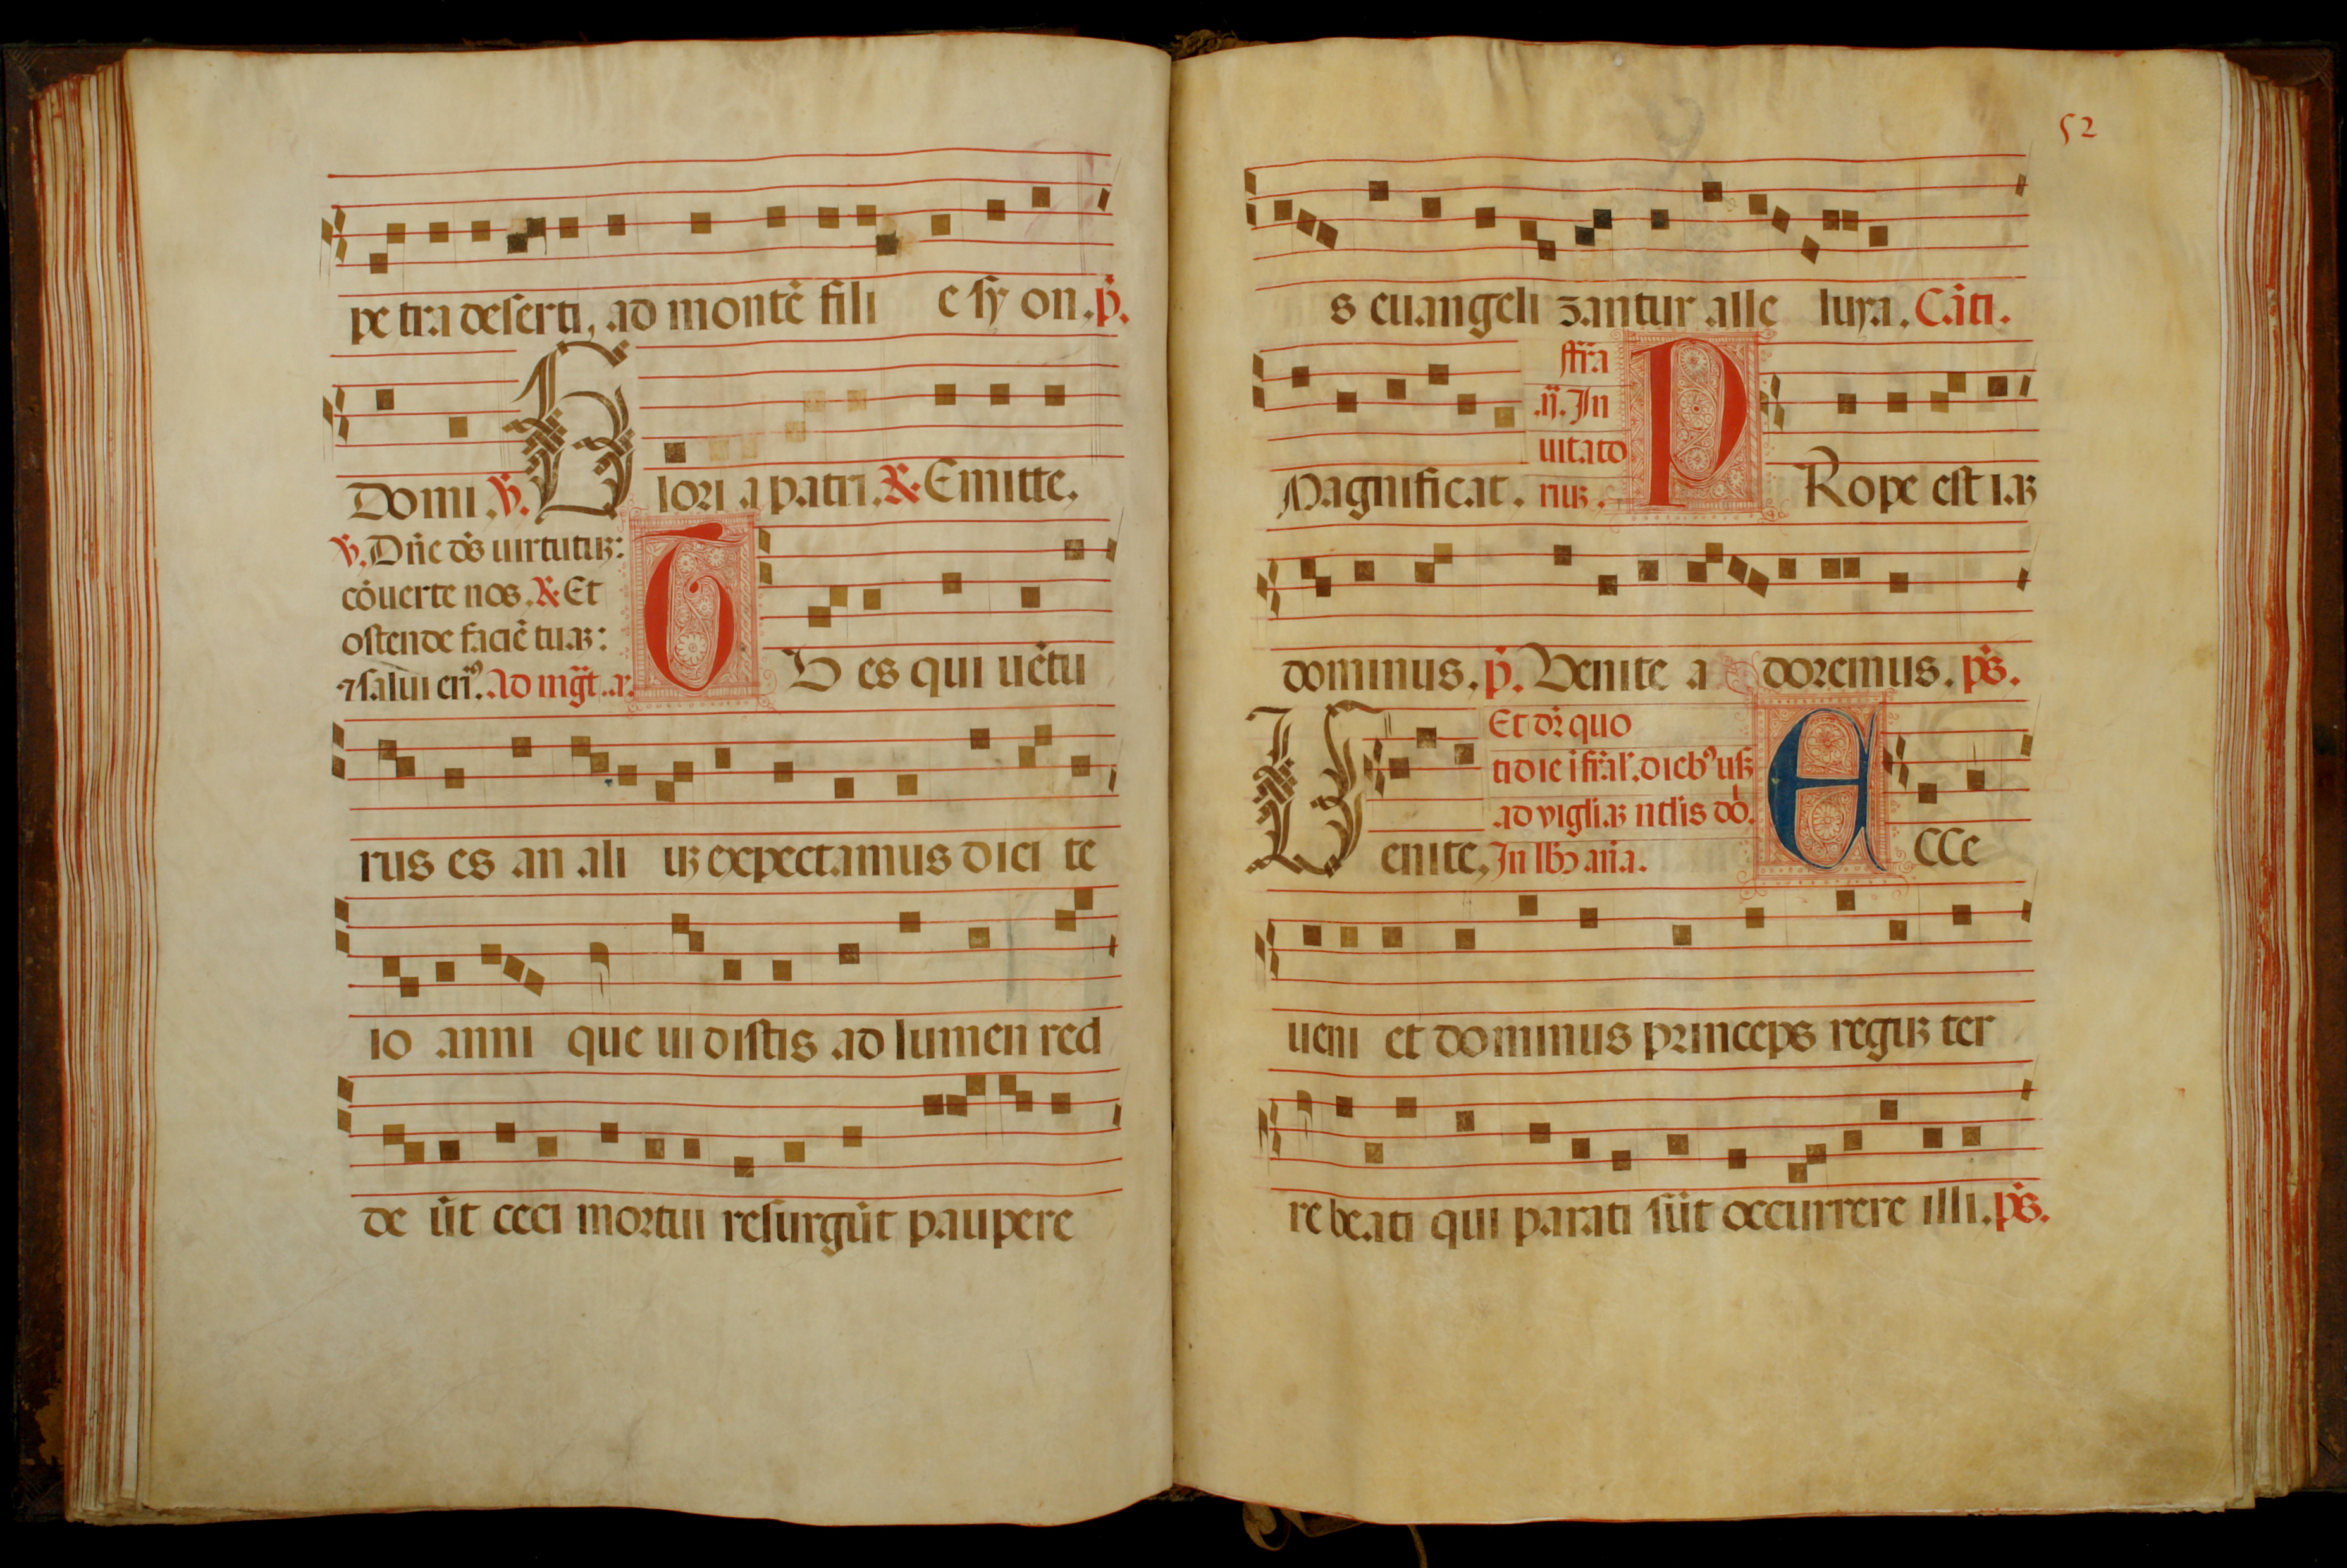 pe tra deserti, ad montē fili e sy on. p̄.
Domi. ℣. Glori a patri. ℟. Emitte.
℣. Dñe ds̄ uirtutuꝫ:
cōuerte nos. ℟. Et
ostende faciē tuaꝫ:
⁊ salui erim⁹. Ad mg̃t. a.
TV es qui uētu
rus es an ali uꝫ expectamus dici te
io anni que ui distis ad lumen red
de ūt ceci mortui resurgūt paupere
52
s euangeli zantur alle luya. Cāti.
Magnificat.
ffr̃a
.ij. In
uitato
riuꝫ.
PRope est iaꝫ
dominus. p̄. Venite a doremus. ps̄.
Venite.
Et dr̄ quo
tidie i fr̃al'. dieb⁹ usꝫ
ad vigliaꝫ ntl̃is do.
In lb̃ añа.
ECce
ueni et dominus princeps reguꝫ ter
re beati qui parati sūt occurrere illi. ps̄.